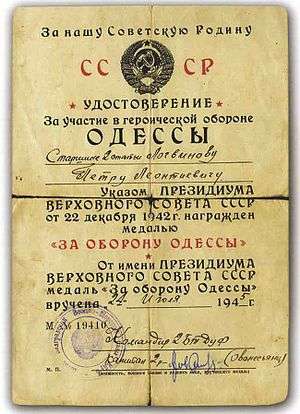 За нашу Советскую Родину
СС СР
★ УДОСТОВЕРЕНИЕ ★
За участие в героической обороне
ОДЕССЫ
Старшине 2 статьи Логвинову
Петру Леонтиевичу
Указом ПРЕЗИДИУМА
ВЕРХОВНОГО СОВЕТА СССР
от 22 декабря 1942 г. награжден
медалью
«ЗА ОБОРОНУ ОДЕССЫ»
От имени ПРЕЗИДИУМА
ВЕРХОВНОГО СОВЕТА СССР
медаль «За оборону Одессы»
вручена 24 июля 1945 г.
М № 19410
Командир
капитан 2 р.
М. П.